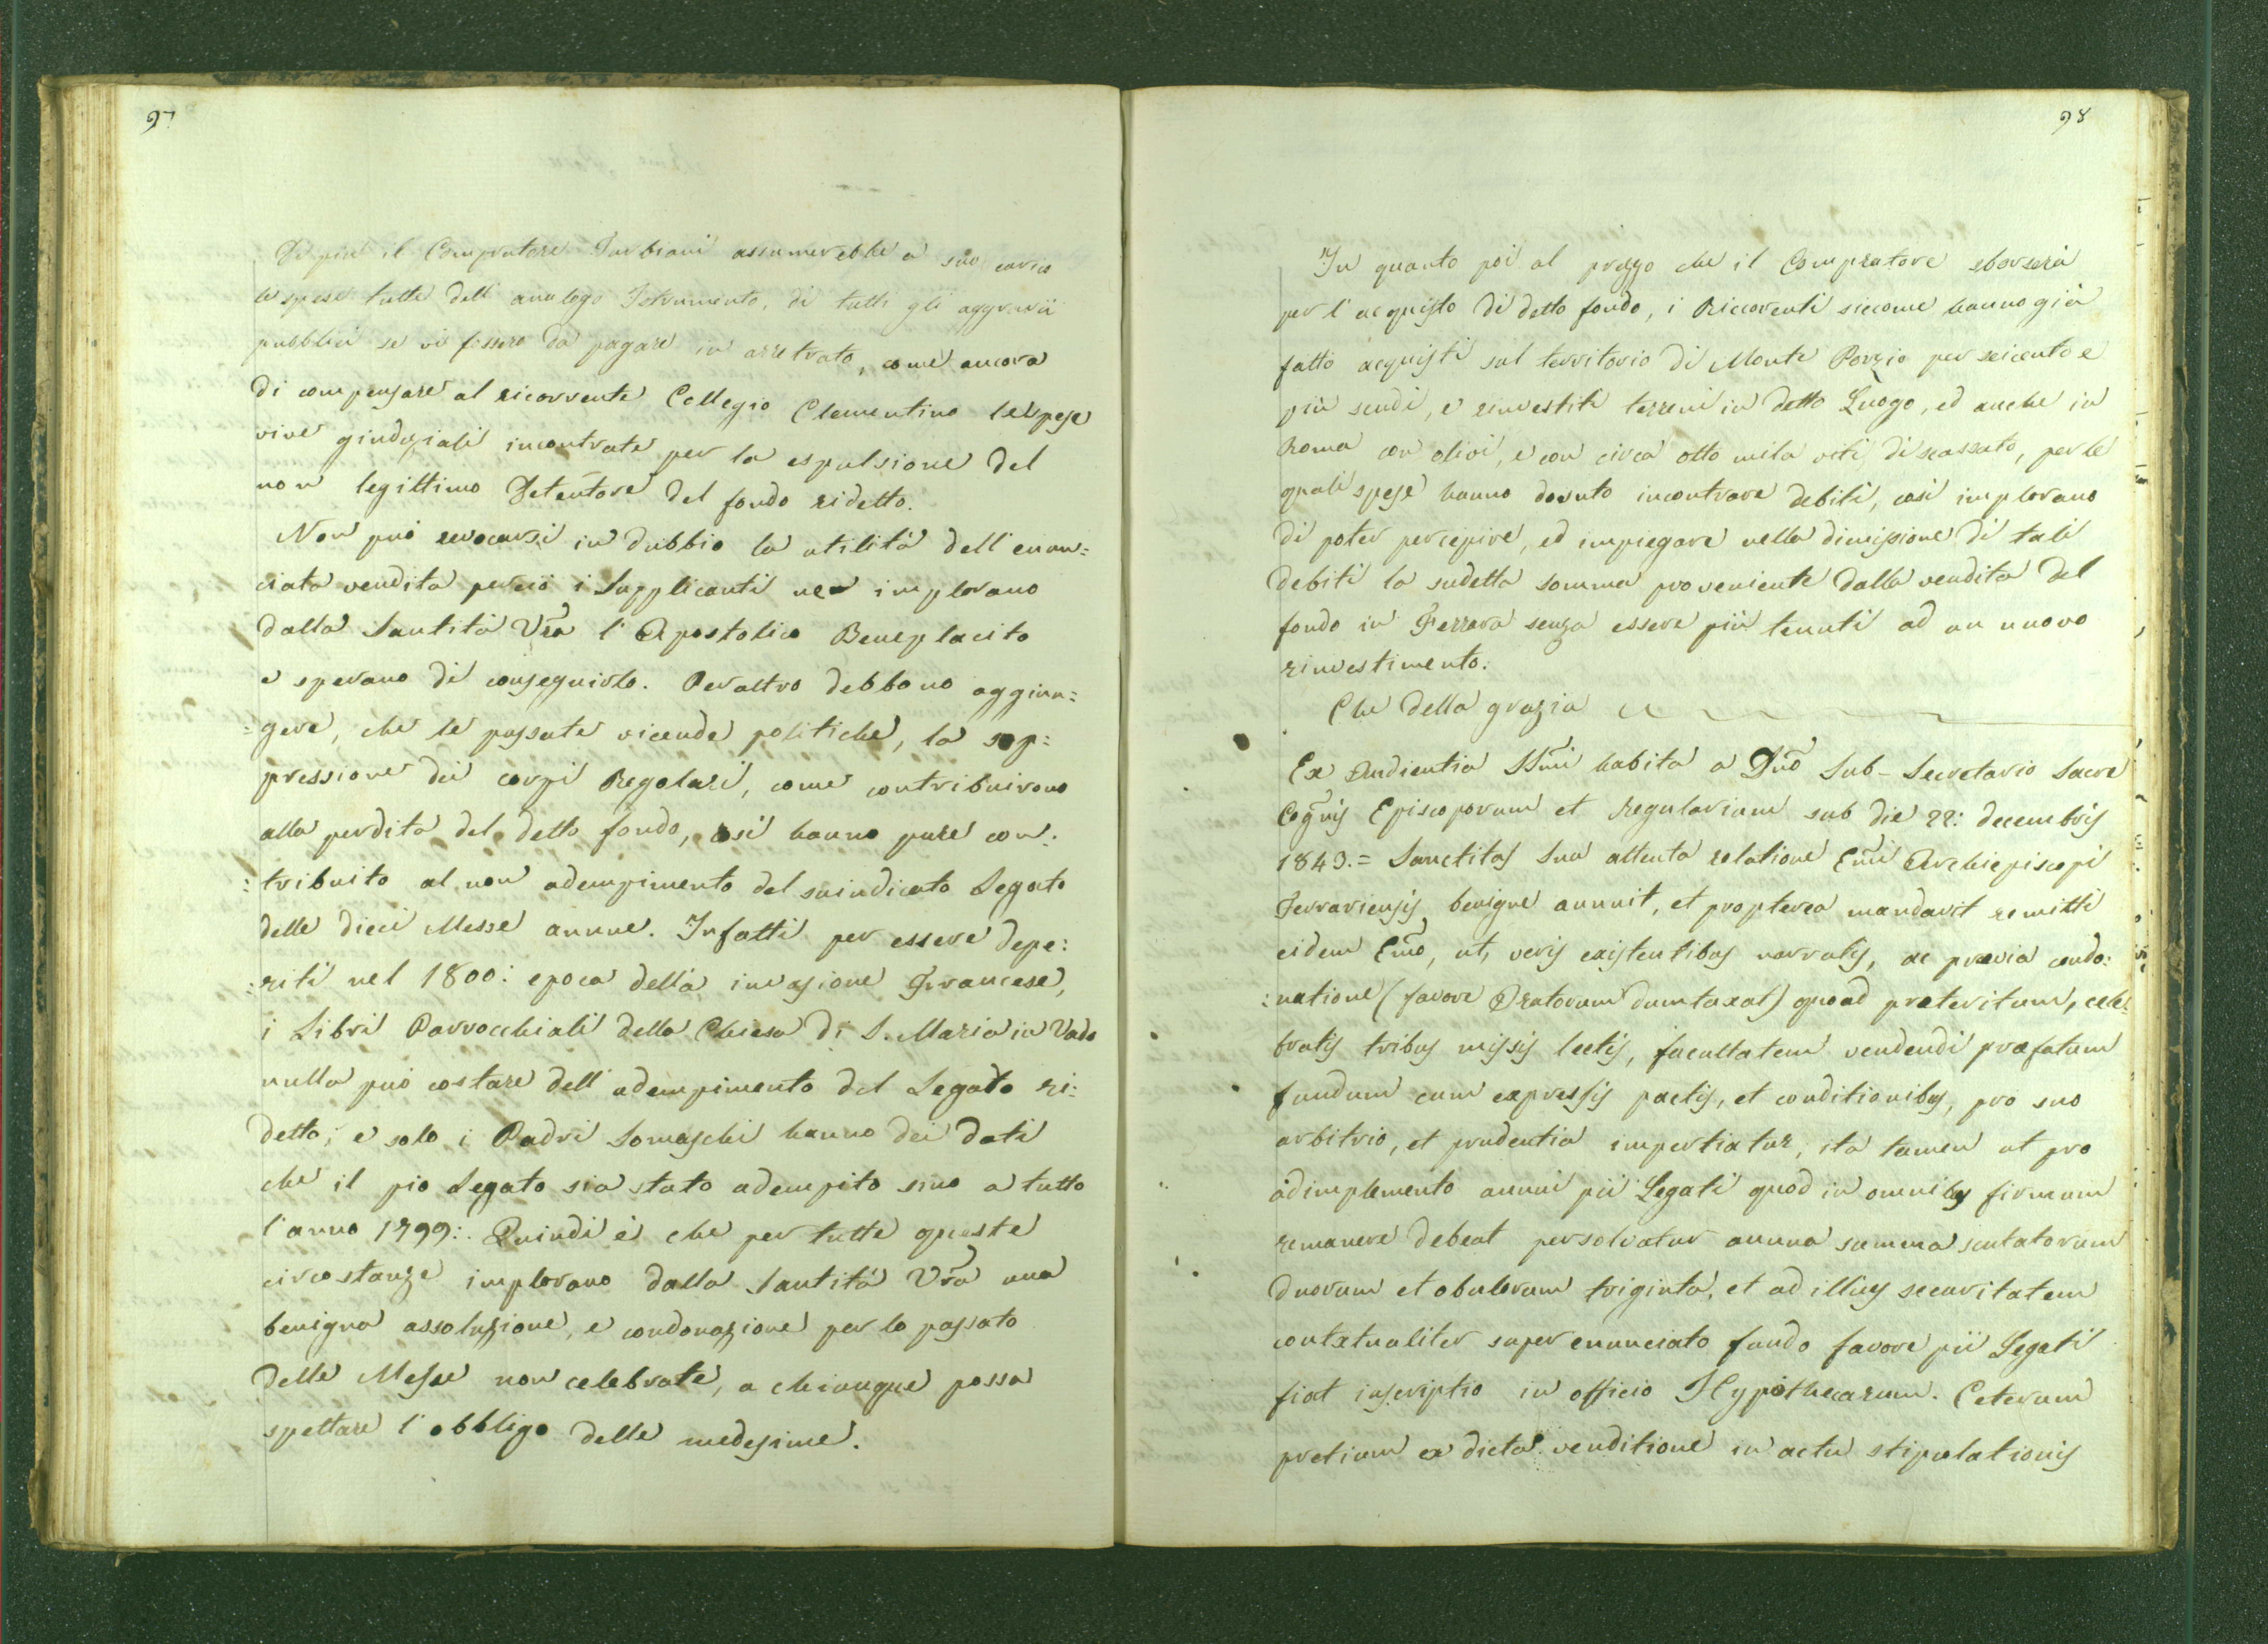 97
Di più il Compratore Turbiani assumerebbe a suo carico
le spese tutte dell' analogo Istrumento, di tutti gli aggravii
pubblici se vi fossero da pagare in arretrato, come ancora
di compensare al ricorrente Collegio Clementino le spese
vive giudiziali incontrate per la espulsione del
non legittimo Detentore del fondo ridetto.
Non può revocarsi in dubbio la utilità dell' enun=
ciata vendita perciò i Supplicanti ne implorano
dalla Santità Vrã l' Apostolico Beneplacito
e sperano di conseguirlo. Peraltro debbono aggiun=
=gere, che le passate vicende politiche, la sop=
pressione dei corpi Regolari, come contribuirono
alla perdita del detto fondo, così hanno pure con:
:tribuito al non adempimento del suindicato Legato
delle dieci Messe annue. Infatti per essere depe:
:riti nel 1800: epoca della invasione Francese,
i Libri Parrocchiali della Chiesa di S. Maria in Vado
nulla può costare dell' adempimento del Legato ri:
detto; e solo i Padri Somaschi hanno dei dati
che il pio Legato sia stato adempito sino a tutto
l'anno 1799:. Quindi è che per tutte queste
circostanze implorano dalla Santità Vrã una
benigna assoluzione, e condonazione per lo passato
delle Messe non celebrate, a chiunque possa
spettare l' obbligo delle medesime.
98
In quanto poi al prezzo che il Compratore sborserà
per l' acquisto di detto fondo, i Riccorenti siccome hanno già
fatto acquisti sul territorio di Monte Porzio per seicento e
più scudi, e rinvestiti terreni in detto Luogo, ed anche in
Roma con olivi, e con circa otto mila viti, di scassato, per le
quali spese hanno dovuto incontrare debiti, così implorano
di poter percepire, ed impiegare nella dimissione di tali
debiti la sudetta somma proveniente dalla vendita del
fondo in Ferrara senza essere più tenuti ad un nuovo
rinvestimento.
Che della grazia
Ex Audientia SSmi habita a Dño Sub-Secretario Sacre
Cogñis Episcoporum et Regularium sub die 22: decembris
1843.= Sanctitas Sua attenta relatione Emi Archiepiscopi
Ferrariensis benigne annuit, et propterea mandavit remitti
eidem Emo, ut, veris existentibus narratis, ac prævia condo:
:natione (favore Oratorum dumtaxat) quoad preteritum, cele=
bratis tribus missis lectis, facultatem vendendi præfatum
fundum cum expressis pactis, et conditionibus, pro suo
arbitrio, et prudentia impertiatur, ita tamen ut pro
adimplemento annui pii Legati quod in omnibus firmum
remanere debeat persolvatur annua summa scutatorum
duorum et obulorum triginta, et ad illius securitatem
contxtualiter super enunciato fundo favore pii Legati
fiat inscriptio in officio Hypothecarum. Ceterum
pretium ex dicta venditione in actu stipulationis